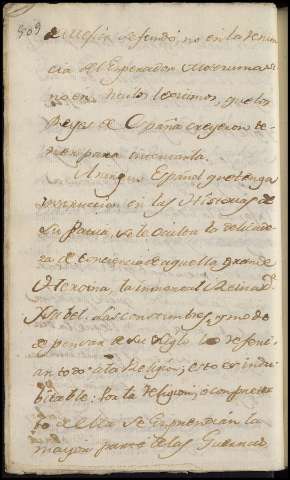 309
de Mexico se fundó, no en la renun
cia del Emperador Moctezuma si
no en titulos legitimos, que los
Reyes de España creyeron te
ner para
A ningun Español que tenga
instruccion en las Historias de
su Patria, se le oculta lo delicada
de conciencia de aquella grande
Heroina, la inmortal Reina D.
Isabel. Las costumbres, y modo
de pensar de su siglo lo
todo a la Religion; esto es indu
bitable: Por la religion, o con pretex
to de ella se emprendian la
mayor parte de las Guerras